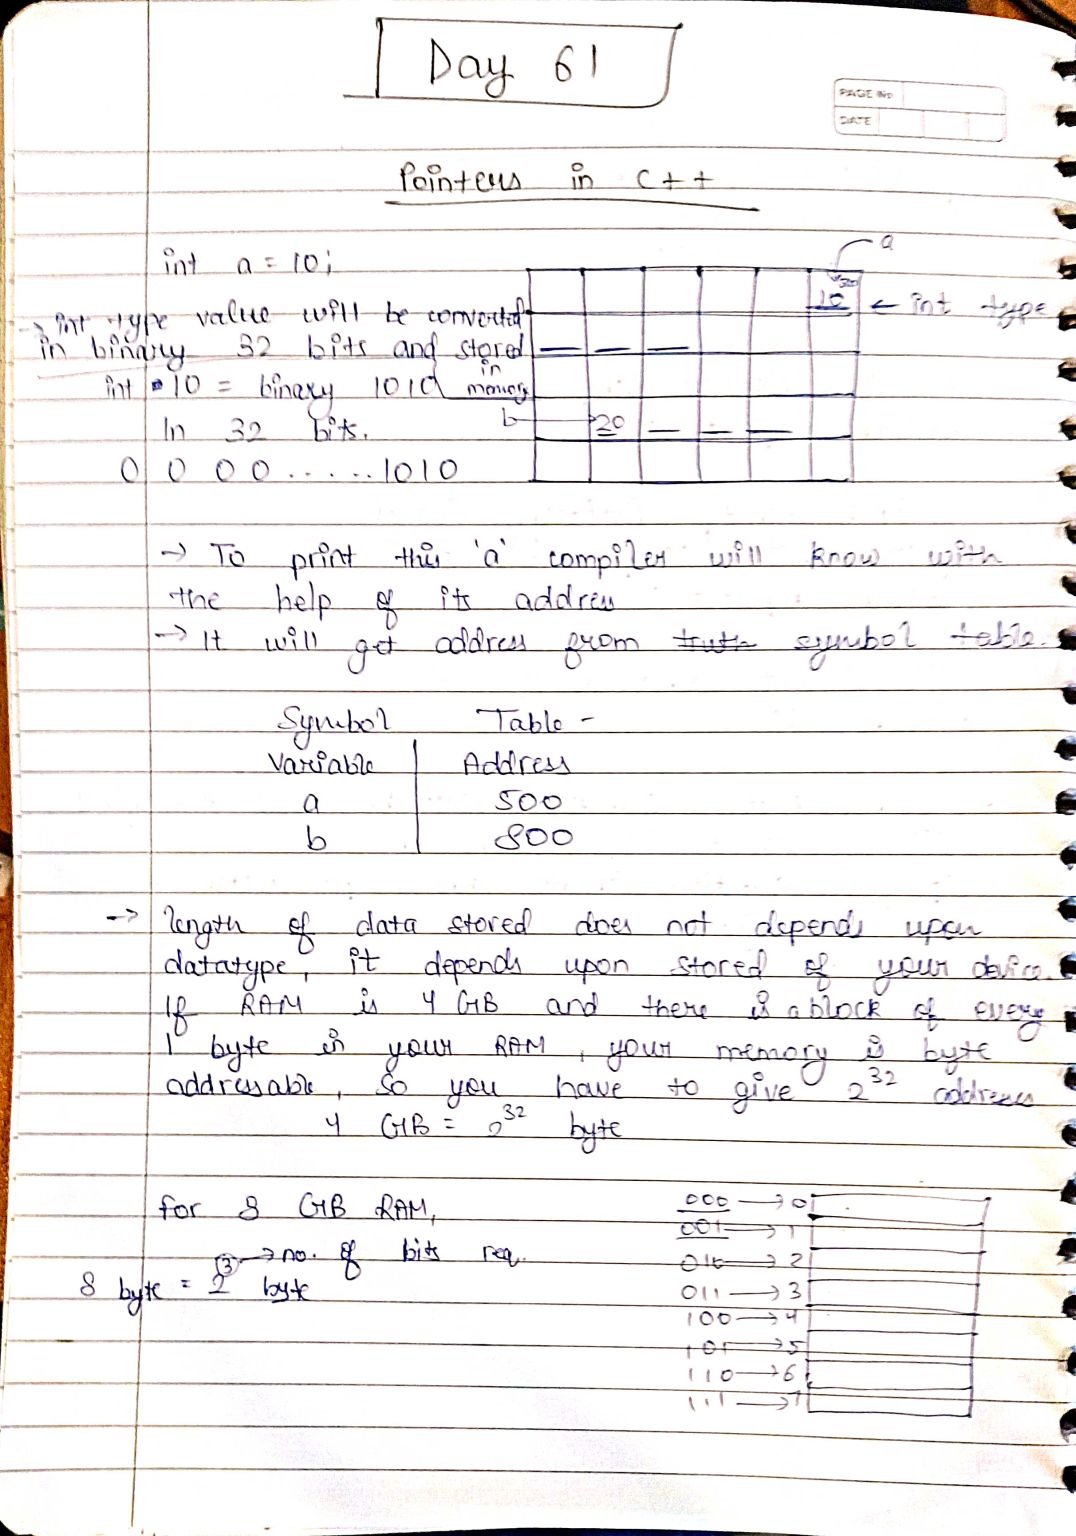 Day 61
PAGE No
DATE
Pointers in C++
int a = 10;
a
500
10 ← int type
→ int type value will be converted
in binary 32 bits and stored
in
memory
int 10 = binary 1010
In 32 bits.
b 20
0 0 0 0 ...... 1010
→ To print this 'a' compiler will know with
the help of its address
→ It will get address from symbol table.
Symbol Table -
Variable Address
a 500
b 800
→ length of data stored does not depends upon
datatype, it depends upon stored of your device.
If RAM is 4 GB and there is a block of every
1 byte in your RAM, your memory is byte
addressable, so you have to give 2^32 addresses
4 GB = 2^32 byte
for 8 GB RAM,
→ no. of bits req.
8 byte = 2^3 byte
000 → 0
001 → 1
010 → 2
011 → 3
100 → 4
101 → 5
110 → 6
111 → 7